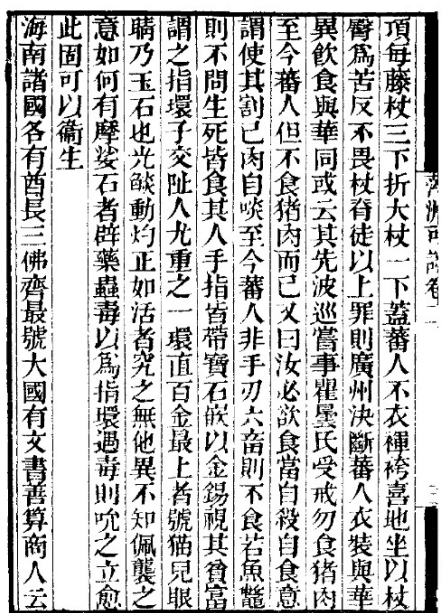 項每藤杖三下折大杖一下蓋蕃人不衣褌袴喜地坐以杖
臀爲苦反不畏杖脊徒以上罪則廣州決斷蕃人衣裝與華
異飲食與華同或云其先波巡嘗事瞿曇氏受戒勿食猪肉
至今蕃人但不食猪肉而已又曰汝必欲食當自殺自食意
謂使其割己肉自啖至今蕃人非手刃六畜則不食若魚鼈
則不問生死皆食其人手指皆帶寶石嵌以金錫視其貧富
謂之指環子交阯人尤重之一環直百金最上者號猫兒眼
睛乃玉石也光燄動灼正如活者究之無他異不知佩襲之
意如何有摩娑石者辟藥蟲毒以爲指環遇毒則吮之立愈
此固可以衞生
海南諸國各有酋長三佛齊最號大國有文書善算商人云